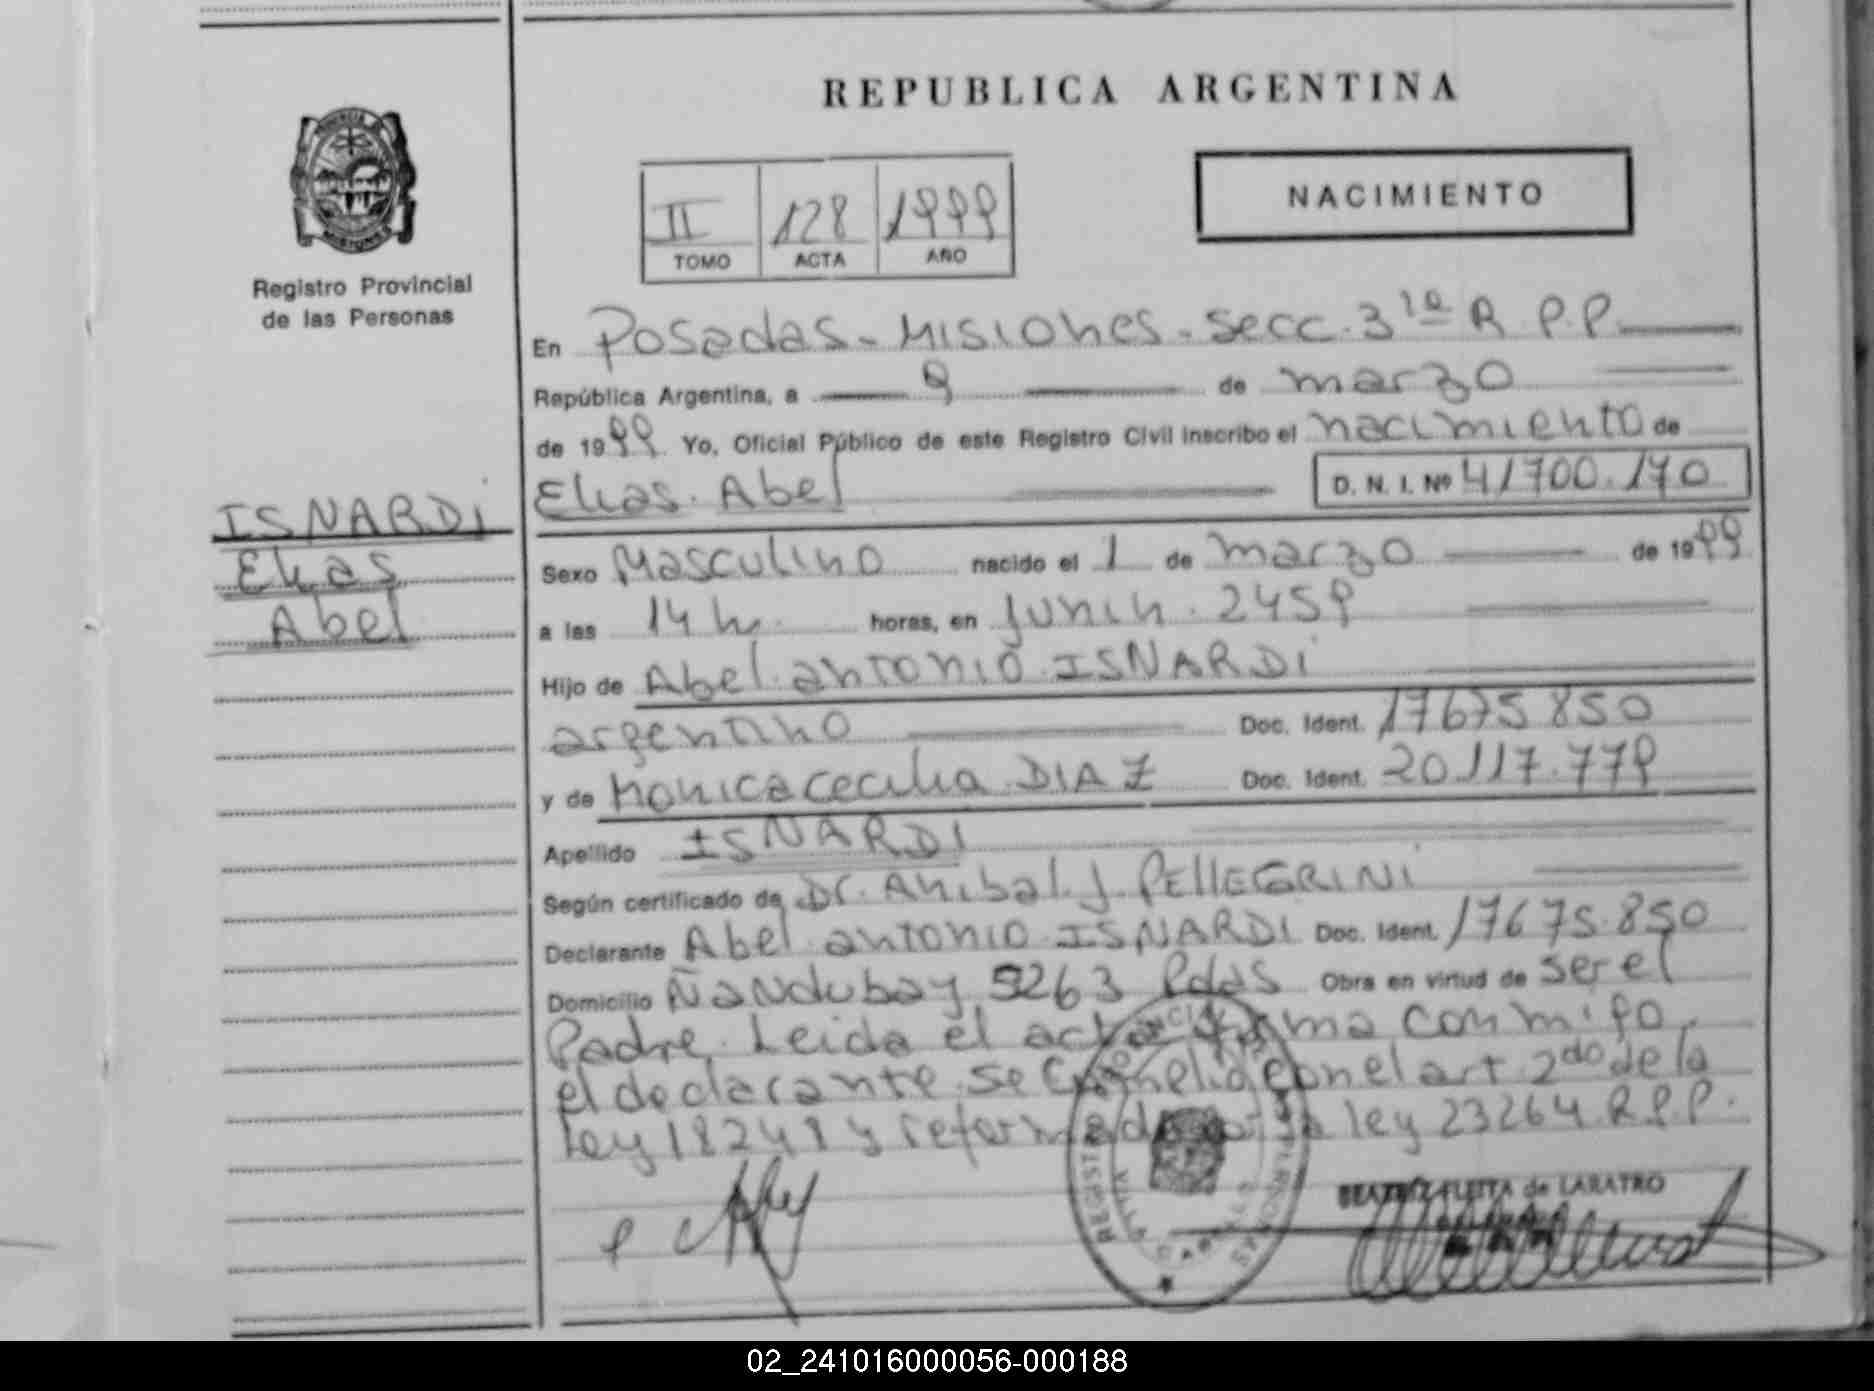 REPUBLICA ARGENTINA
PROVINCIA DE
MISIONES
Registro Provincial
de las Personas
II 128 1999
TOMO ACTA AÑO
NACIMIENTO
En Posadas - Misiones - Secc. 3ra R.P.P.
República Argentina, a 9 de marzo
de 1999 Yo, Oficial Público de este Registro Civil inscribo el nacimiento de
Elias Abel D. N. I. Nº 41700.170
ISNARDI
Elias
Abel
Sexo Masculino nacido el 1 de marzo de 1999
a las 14 hs. horas, en Junin. 2459
Hijo de Abel antonio ISNARDI
argentino Doc. Ident. 17675850
y de Monica Cecilia DIAZ Doc. Ident. 20.117.779
Apellido ISNARDI
Según certificado de Dr. Anibal J. PELLEGRINI
Declarante Abel antonio ISNARDI Doc. Ident. 17675.850
Domicilio Ñandubay 5263 Pdas Obra en virtud de ser el
Padre. Leida el acta firma conmigo
el declarante se cumple con el art 2do de la
Ley 18248 y reformada por la ley 23264 R.P.P.
REGISTRO PROVINCIAL PERSONAS
BEATRIZ FLEITA de LABATRO
02_241016000056-000188